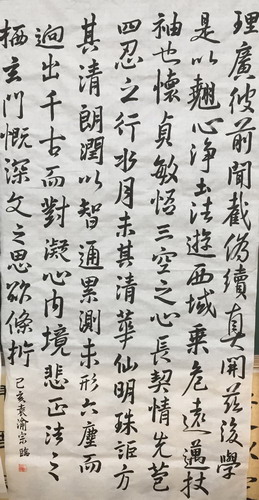 理廣彼前聞截偽續真開茲後學
是以翹心淨土法遊西域乘危遠邁杖
袖也懷貞敏悟三空之心長契情先苞
四忍之行水月未其清華仙明珠詎方
其清朗潤以智通累測未形六塵而
迥出千古而對凝心內境悲正法之
栖玄門慨深文之思欲條析
己亥袁渝宗臨